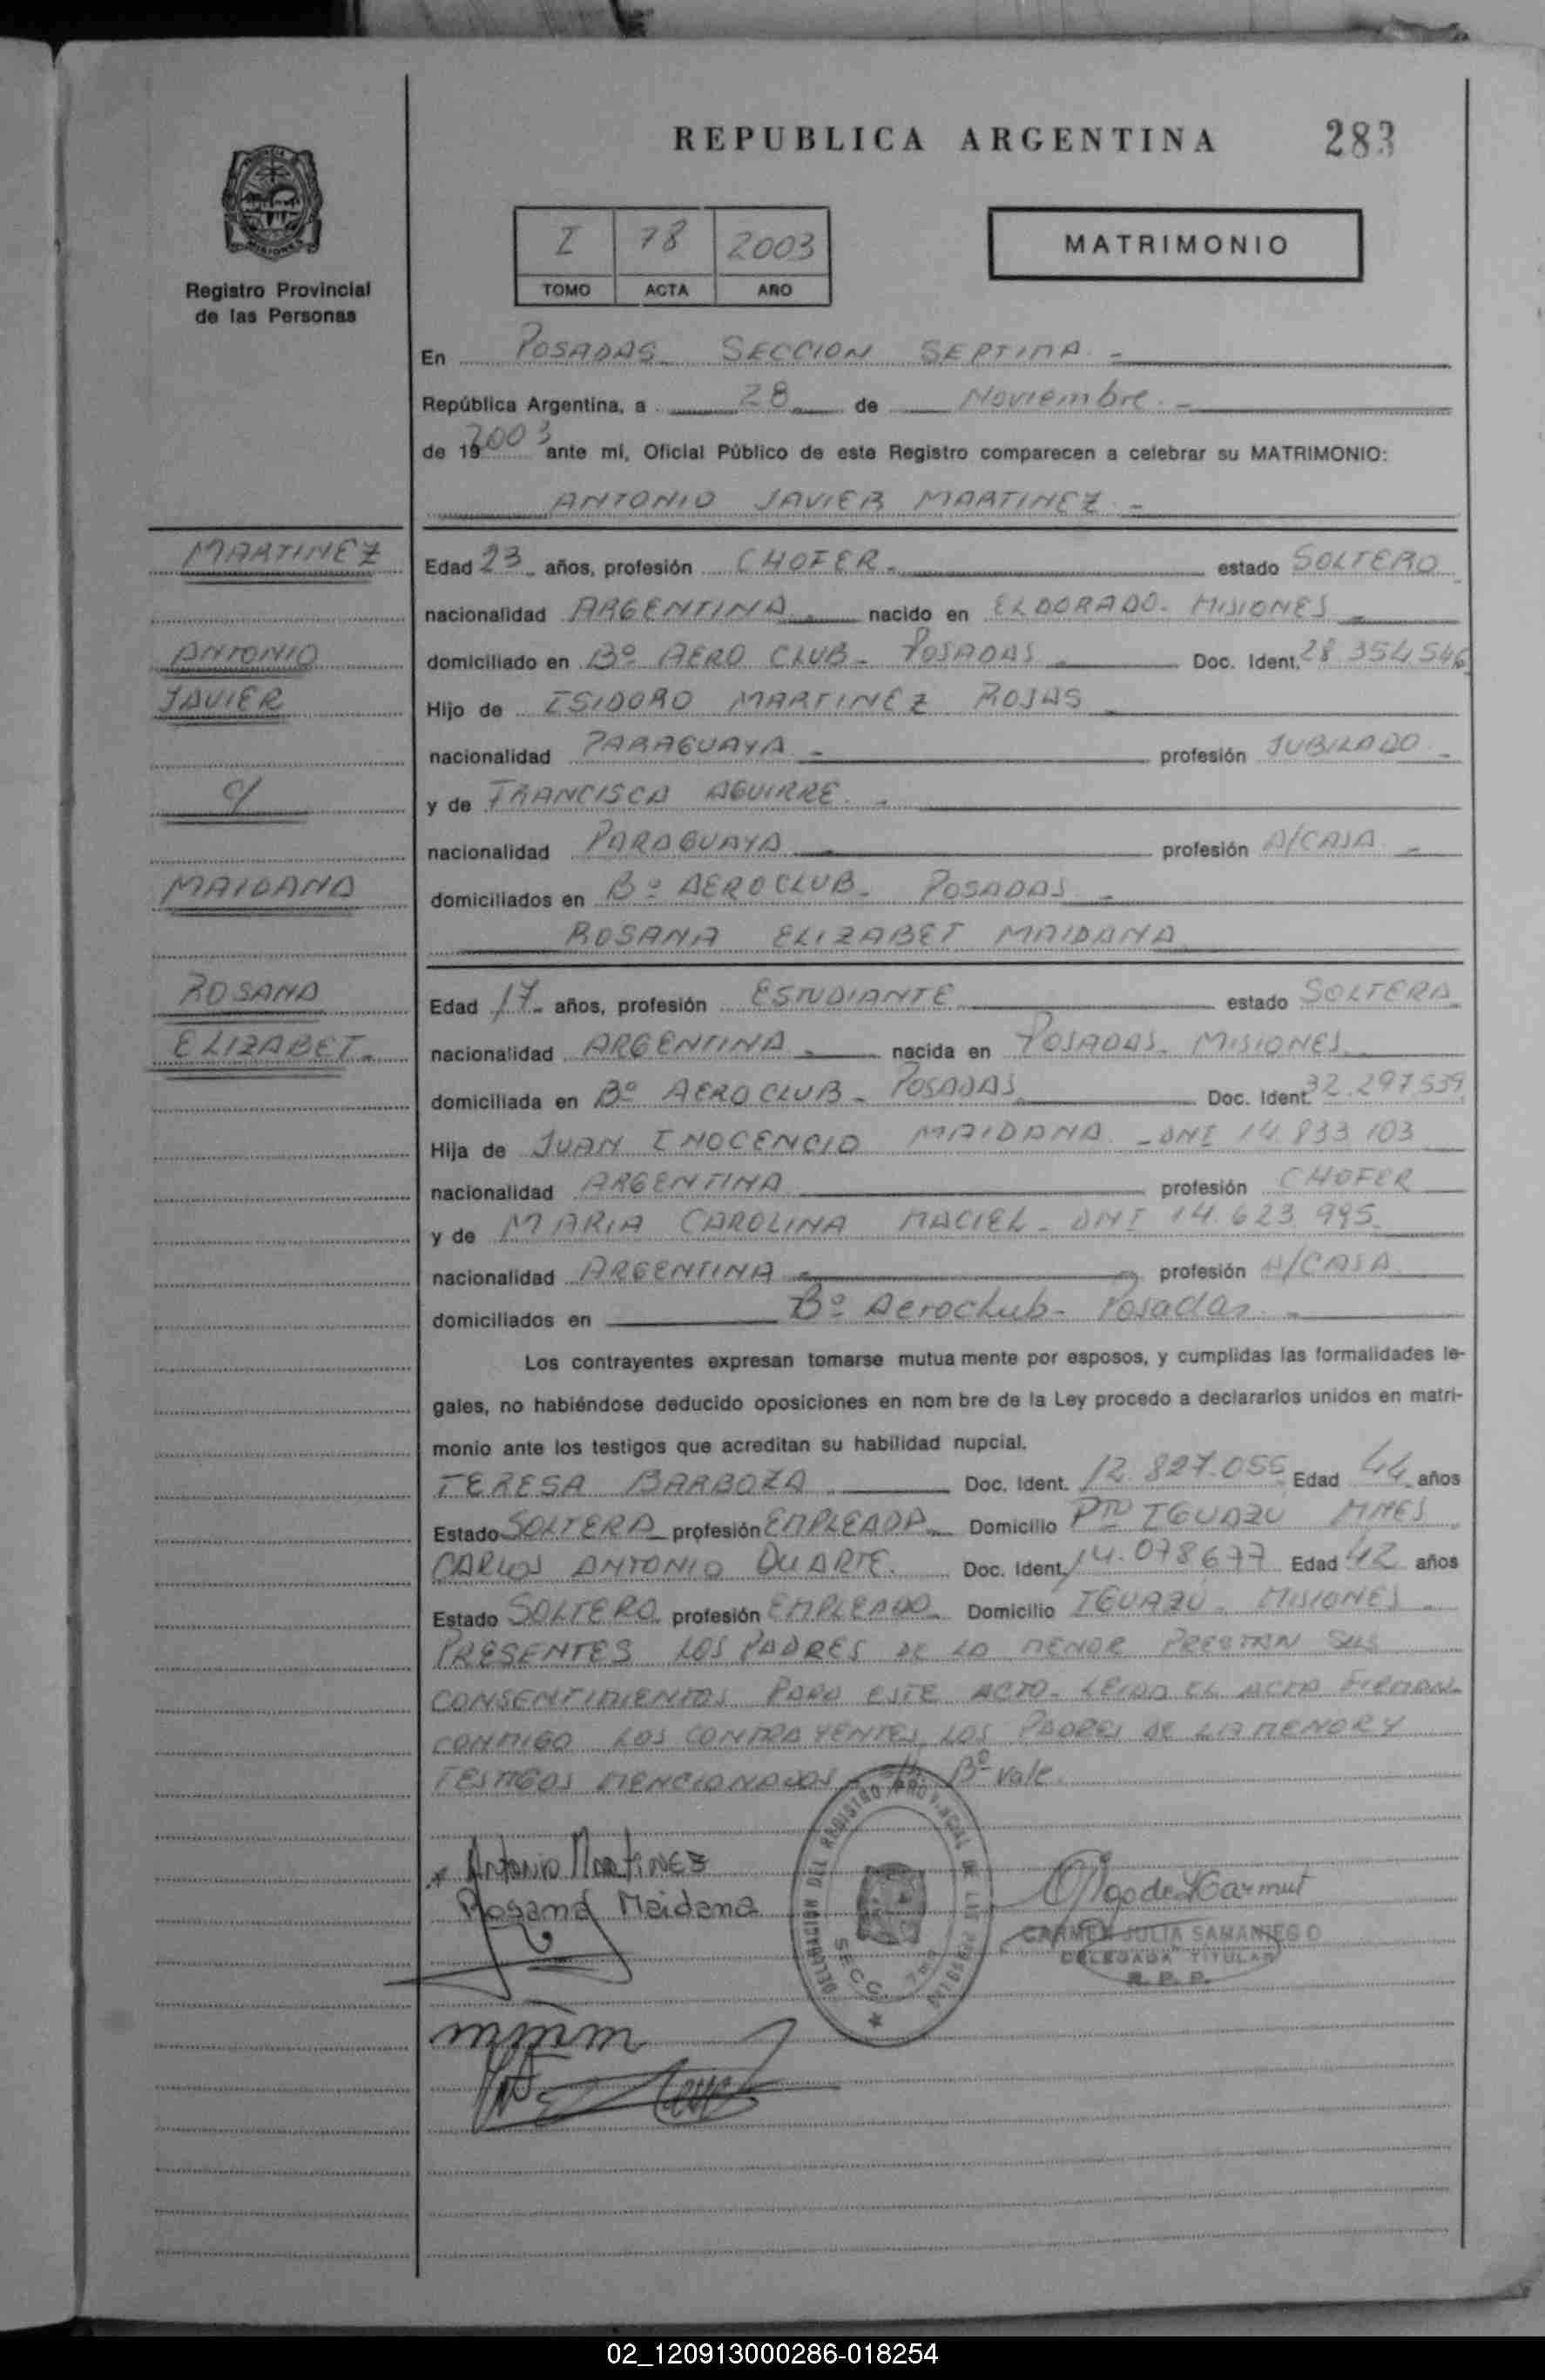 REPUBLICA ARGENTINA
283
Registro Provincial
de las Personas
I 78 2003
TOMO ACTA AÑO
MATRIMONIO
En POSADAS SECCION SEPTIMA.-
República Argentina, a 28 de Noviembre.-
de 19 2003 ante mi, Oficial Público de este Registro comparecen a celebrar su MATRIMONIO:
ANTONIO JAVIER MARTINEZ.-
MARTINEZ
ANTONIO
JAVIER
c/
MAIDANA
ROSANA
ELIZABET.
Edad 23 años, profesión CHOFER.- estado SOLTERO
nacionalidad ARGENTINA.- nacido en ELDORADO- MISIONES
domiciliado en Bº AERO CLUB- POSADAS Doc. Ident. 28.354.546
Hijo de ISIDORO MARTINEZ ROJAS
nacionalidad PARAGUAYA - profesión JUBILADO.-
y de FRANCISCA AGUIRRE.-
nacionalidad PARAGUAYA profesión A/CASA.-
domiciliados en Bº AEROCLUB- POSADAS
ROSANA ELIZABET MAIDANA
Edad 17- años, profesión ESTUDIANTE estado SOLTERA
nacionalidad ARGENTINA.- nacida en POSADAS- MISIONES
domiciliada en Bº AEROCLUB- POSADAS Doc. Ident. 32.297.539
Hija de JUAN INOCENCIO MAIDANA -DNI 14.833.103
nacionalidad ARGENTINA profesión CHOFER
y de MARIA CAROLINA MACIEL- DNI 14.623.995
nacionalidad ARGENTINA profesión A/CASA
domiciliados en Bº Aeroclub- Posadas.-
Los contrayentes expresan tomarse mutua mente por esposos, y cumplidas las formalidades le-
gales, no habiéndose deducido oposiciones en nom bre de la Ley procedo a declararlos unidos en matri-
monio ante los testigos que acreditan su habilidad nupcial.
TERESA BARBOZA Doc. Ident. 12.827.055 Edad 44 años
Estado SOLTERA profesión EMPLEADA Domicilio PTO IGUAZÚ MNES
CARLOS ANTONIO DUARTE. Doc. Ident. 14.078677 Edad 42 años
Estado SOLTERO profesión EMPLEADO Domicilio IGUAZÚ- MISIONES
PRESENTES LOS PADRES DE LA MENOR PRESTAN SUS
CONSENTIMIENTOS PARA ESTE ACTO- LEIDA EL ACTA FIRMAN
CONMIGO LOS CONTRAYENTES, LOS PADRES DE LA MENOR Y
TESTIGOS MENCIONADOS Bº vale.
Antonio Martinez
Rosana Maidana
DELEGACION DEL REGISTRO PROVINCIAL DE LAS PERSONAS
SECC. 7ma
CARMEN JULIA SAMANIEGO
DELEGADA TITULAR
R. P. P.
02_120913000286-018254